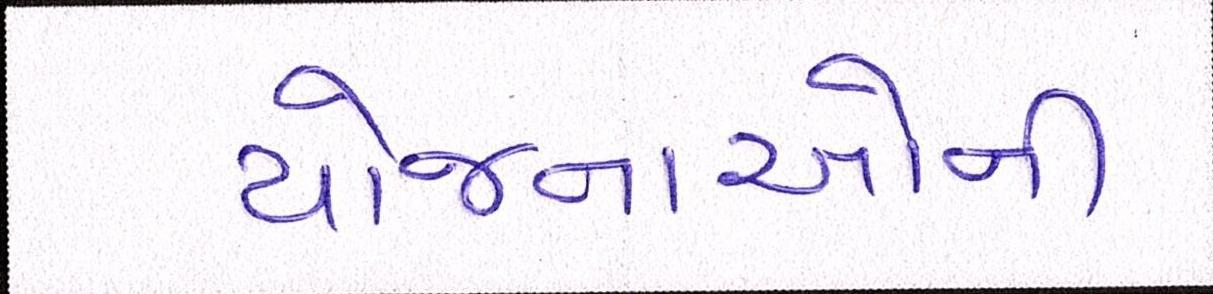 યોજનાઓની